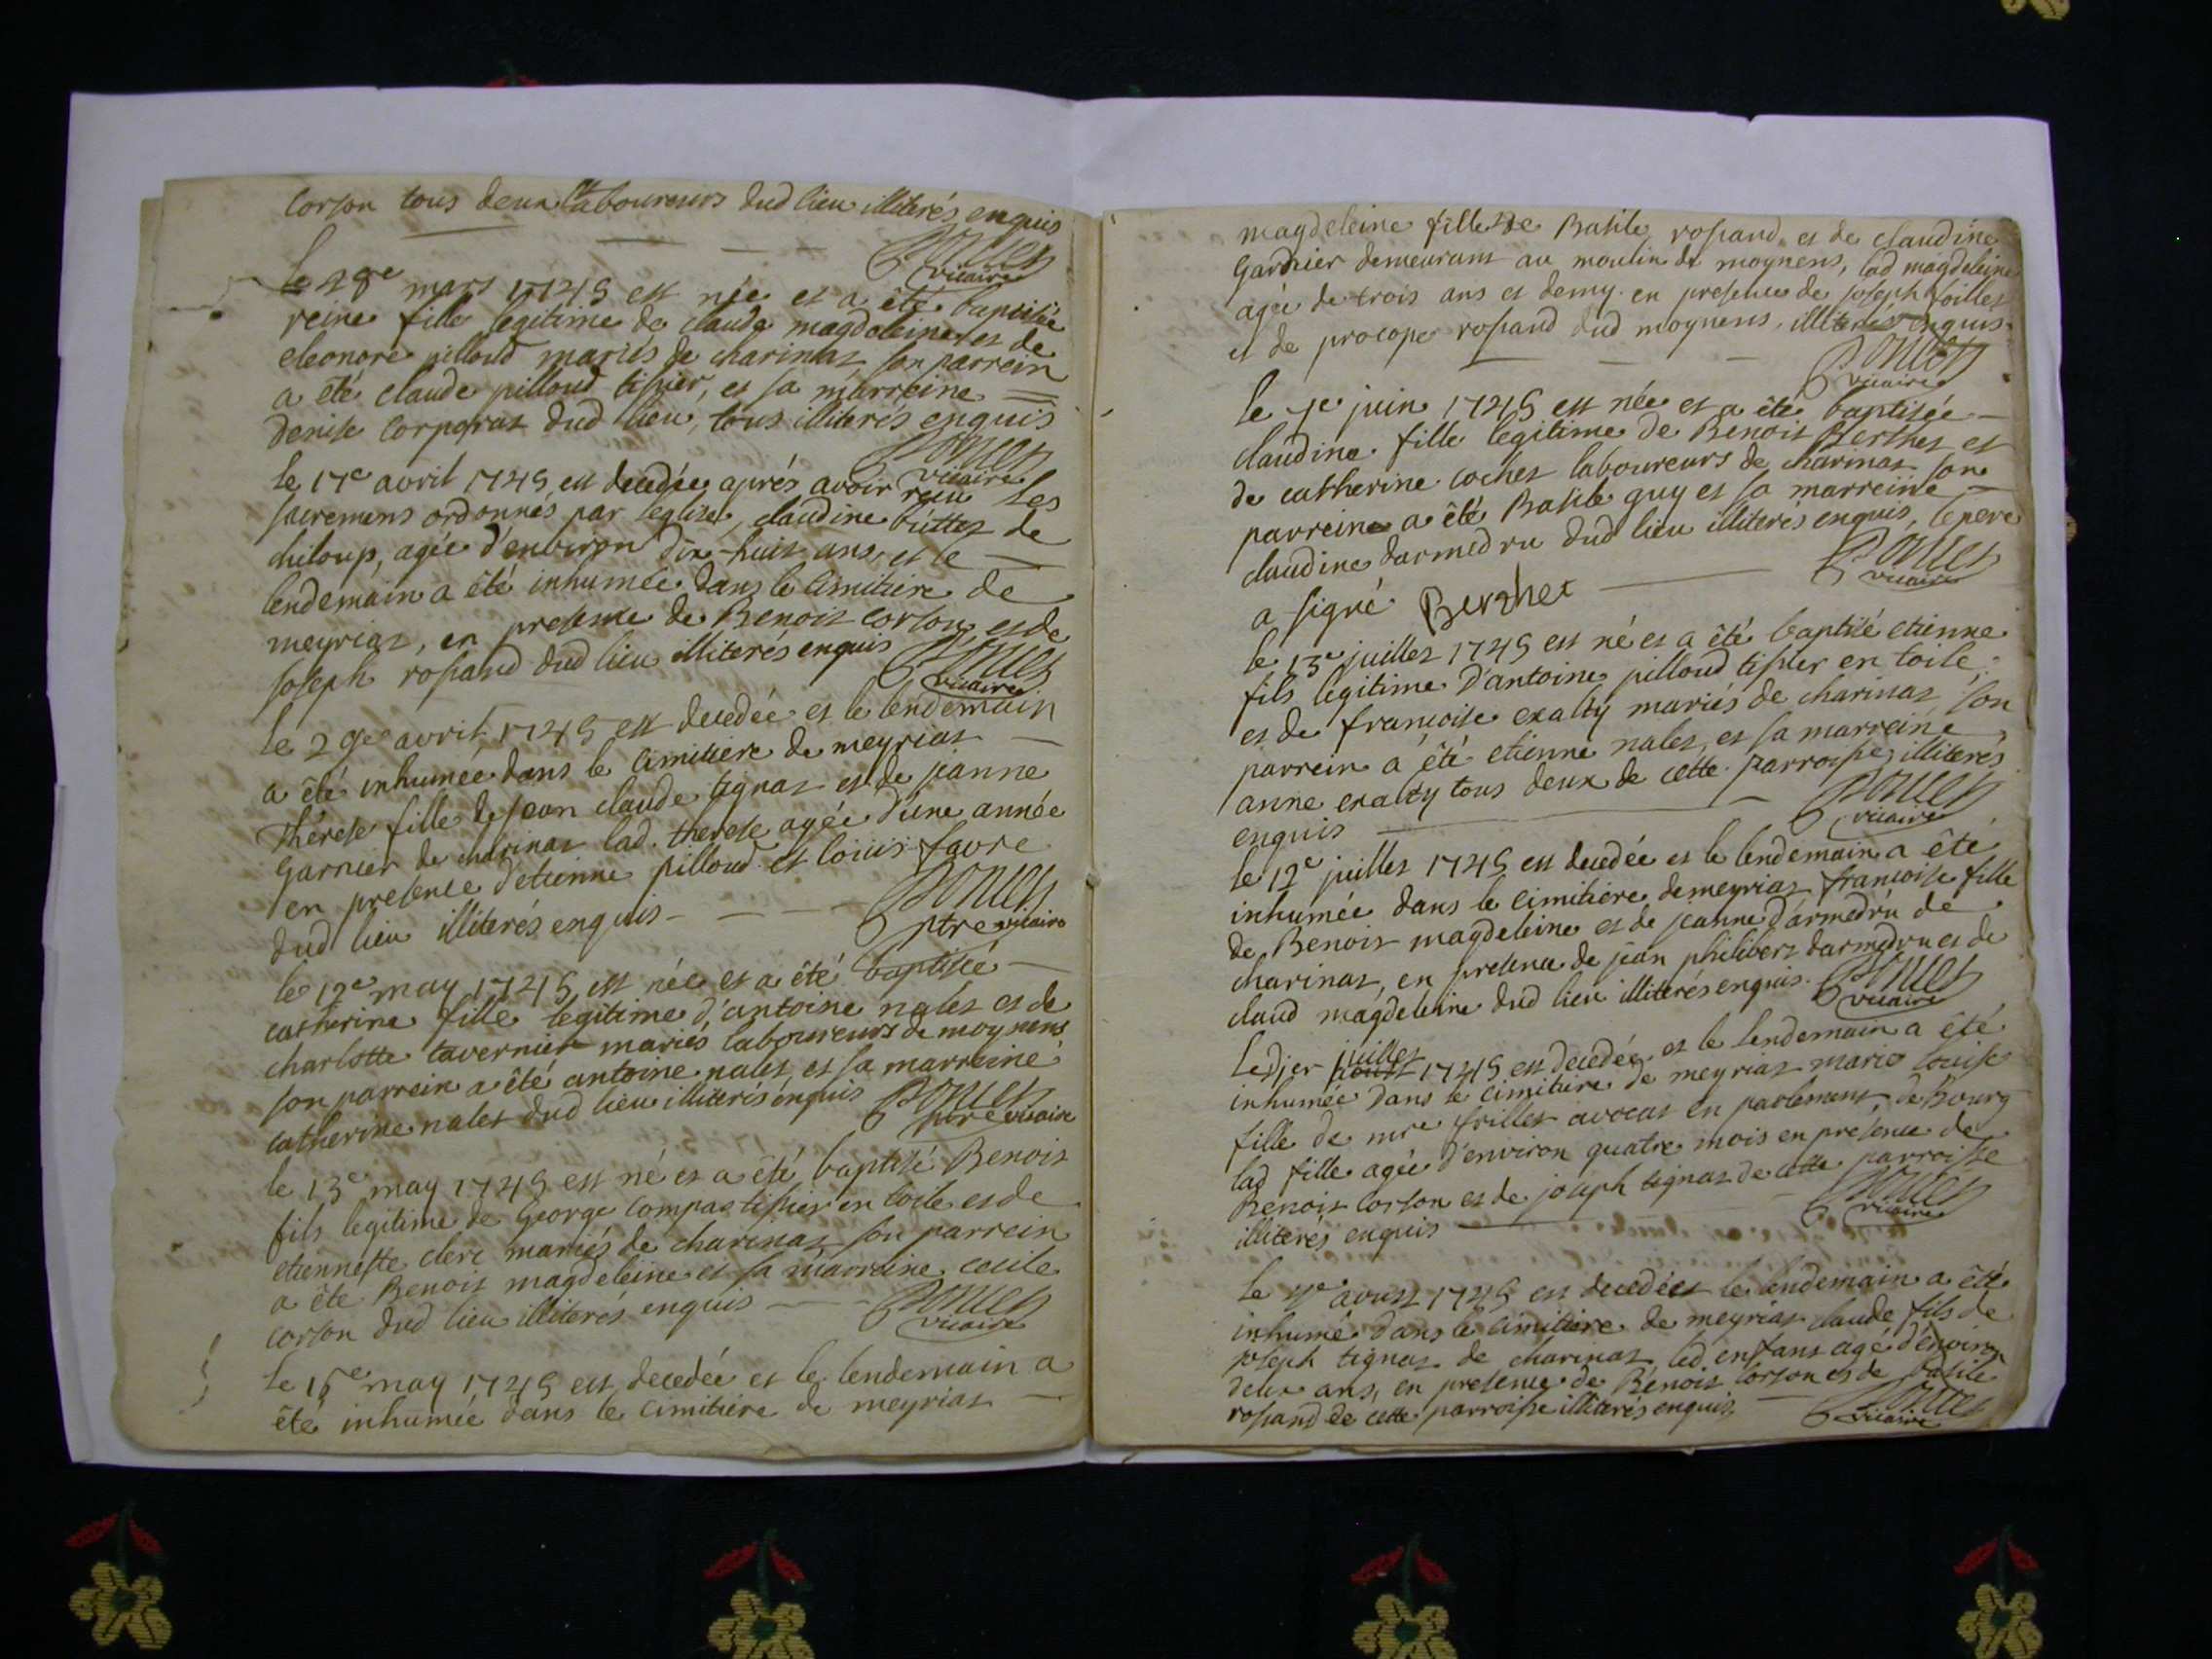 Corson tous deux laboureurs dud lieu illiterés enquis
vicaire
le 28e mars 1745 est née et a êté baptisée
reine fille legitime de claude magdeleine et de
eleonore pilloud mariés de charinaz son parrein
a êté claude pilloud tissier, et sa marreine
denise corporaz dud lieu, tous illiterés enquis
vicaire
le 17e avril 1745 est decedée aprés avoir reçu les
sacremens ordonnés par l'eglise, claudine buttet de
chiloup, agée d'environ dix-huit ans, et le
lendemain a êté inhumée dans le cimitiere de
meyriaz, en presence de Benoit corson et de
joseph rossand dud lieu illiterés enquis
vicaire
le 29e avril 1745 est decedée et le lendemain
a êté inhumée dans le cimitiere de meyriaz
thérese fille de jean claude tignaz et de jeanne
garnier de charinaz lad. therese agée d'une année
en presence d'etienne pilloud et loüis favre
dud lieu illiterés enquis
ptre vicaire
le 12e may 1745 est née et a êté baptisée
catherine fille legitime d'antoine nalet et de
charlotte tavernier mariés laboureurs de moynens
son parrein a êté antoine nalet, et sa marreine
catherine nalet dud lieu illiterés enquis
ptre vicaire
le 13e may 1745 est né et a êté baptisé Benoit
fils legitime de George compas tissier en toile et de
etiennette clerc mariés de charinaz son parrein
a êté Benoit magdeleine et sa marreine cecile
corson dud lieu illiterés enquis
vicaire
le 15e may 1745 est decedée et le lendemain a
êté inhumée dans le cimitiere de meyriaz
magdeleine fille de Basile rossand et de claudine
Garnier demeurant au moulin de moynens, lad magdeleine
agée de trois ans et demy en presence de joseph
et de procope rossand dud moynens, illiterés enquis
vicaire
le 7e juin 1745 est née et a êté baptisée
claudine fille legitime de Benoit Berthet et
de catherine cochet laboureurs de charinaz son
parreine a êté Basile guy et sa marreine
claudine darmedru dud lieu illiterés enquis, le pere
a signé Berthet
vicaire
le 13e juillet 1745 est né et a êté baptisé etienne
fils legitime d'antoine pilloud tissier en toile
et de francoise exalty mariés de charinaz son
parrein a êté etienne nalet, et sa marreine
anne exalty tous deux de cette parroisse illiterés
enquis
vicaire
le 12e juillet 1745 est decedée et le lendemain a êté
inhumée dans le cimitiere de meyriaz francoise fille
de Benoit magdeleine et de jeanne d'armedru de
charinaz, en presence de jean philibert darmedru et de
claud magdeleine dud lieu illiterés enquis.
vicaire
juillet
le 1745 est decedée et le lendemain a êté
inhumée dans le cimitiere de meyriaz marie louise
fille de mre frillet avocat en parlement de Bourg
lad fille agée d'environ quatre mois en presence de
Benoit corson et de joseph tignaz de cette parroisse
illiterés enquis
vicaire
le aoust 1745 est decedé et le lendemain a êté
inhumé dans le cimitiere de meyriaz claude fils de
joseph tignaz de charinaz led enfant agé d'environ
deux ans, en presence de Benoit corson et de basile
rossand de cette parroisse illiterés enquis
vicaire